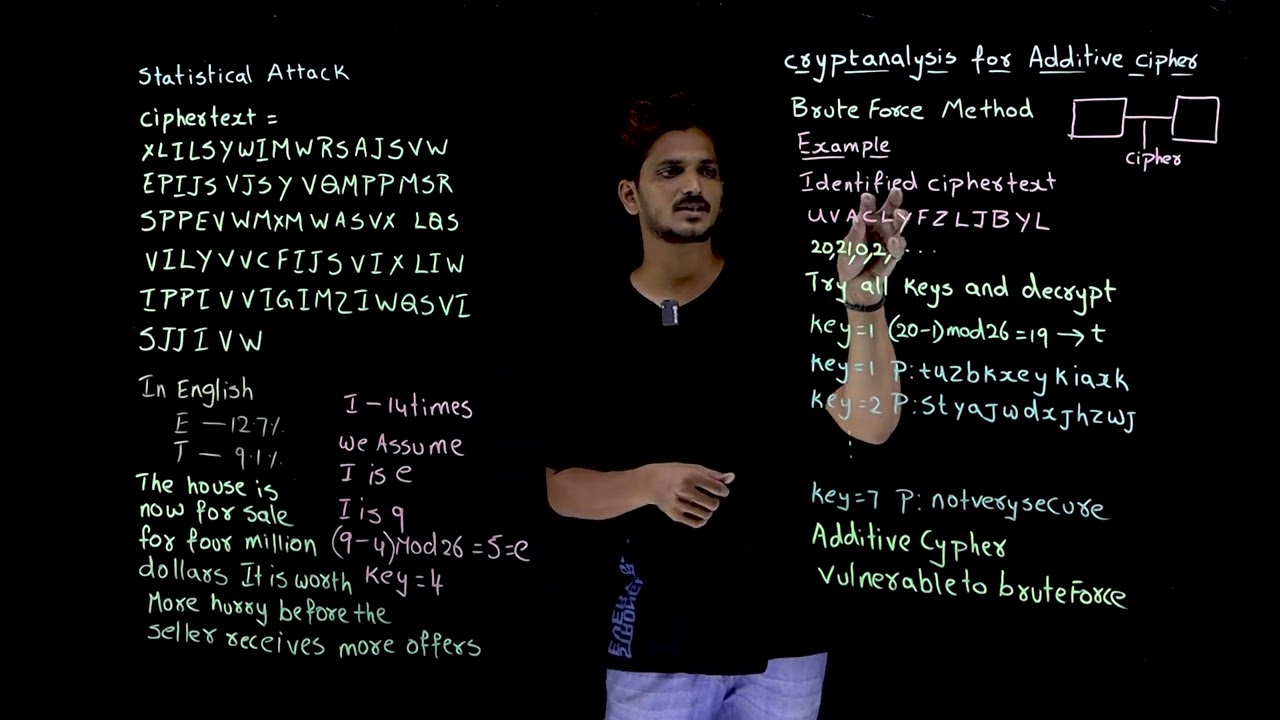 Statistical Attack
ciphertext =
XLILSYWIMWRSAJSVW
EPIJSVJSYVQMPPMSR
SPPEVWMXMWASVX LQS
VILYVVCFIJSVIXLIW
IPPIVVIGIMZIWQSVI
SJJIVW
In English
E — 12.7%
T — 9.1%
The house is
now for sale
for four million
dollars It is worth
More hurry before the
seller receives more offers
I – 14times
we Assume
I is e
I is 9
(9-4)Mod26=5=e
Key=4
cryptanalysis for Additive cipher
Brute Force Method
cipher
Example
Identified ciphertext
UVACLYFZLJBYL
20,21,0,2, ...
Try all keys and decrypt
key=1 (20-1)mod26=19→t
key=1 P:tuzbkxeykiaxk
key=2 P:styajwdxjhzwj
key=7 P: notverysecure
Additive Cypher
Vulnerable to bruteForce